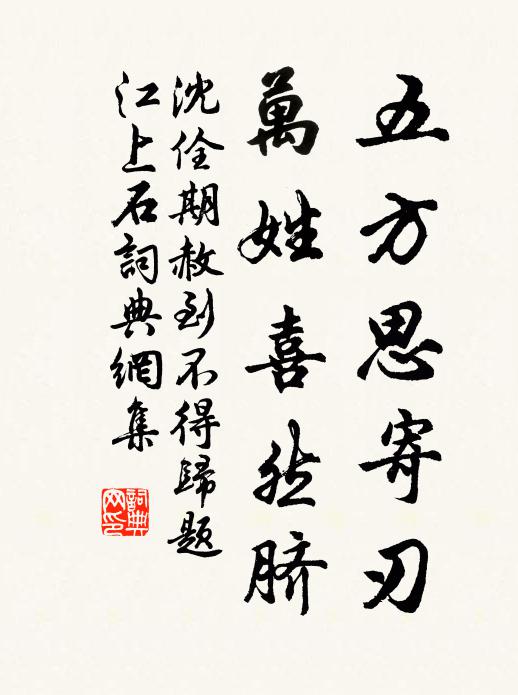 五方思寄刃
萬姓喜然臍
沈佺期赦到不得歸題
江上石詞典網集
詞典
网印